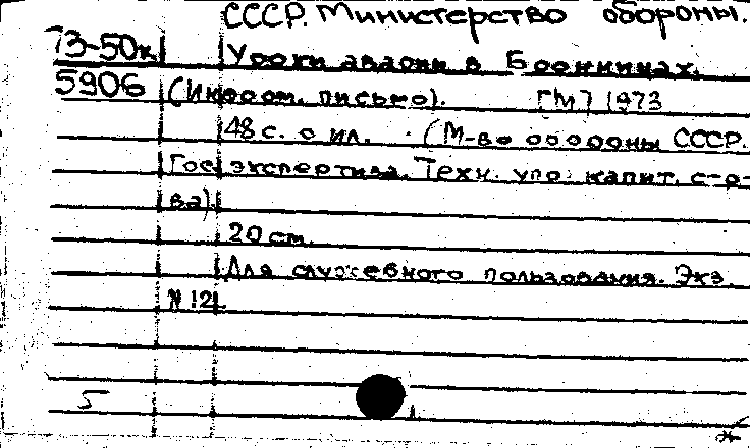 СССР. Министерство обороны.
73-50к Уроки аварии в Боннинах.
5906 (Информ. письмо). [М] 1973
48 с. с ил. (М-во обороны СССР.
Гос экспертиза. Техн. упр. капит. с-р-
ва).
20 см.
Для служебного пользования. Экз.
N 121.
5